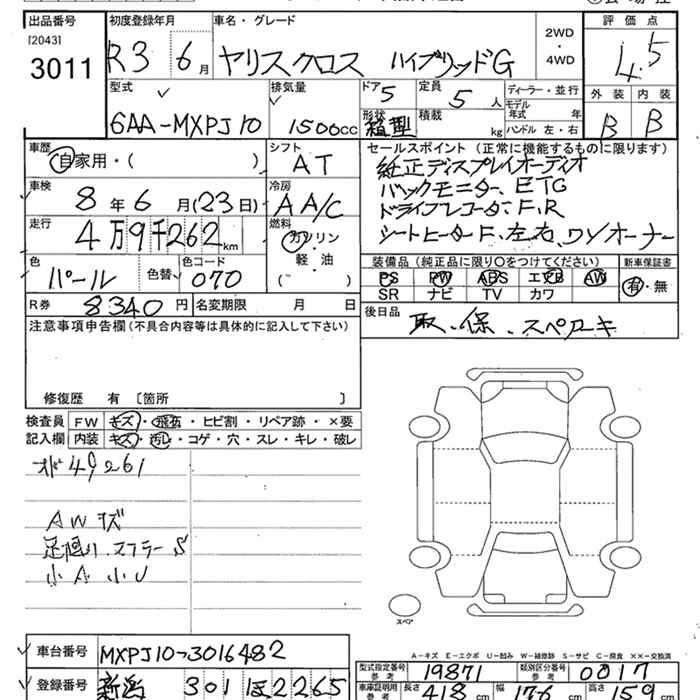 出品番号
[2043]
3011
初度登録年月
R3 6月
車名・グレード
ヤリスクロス ハイブリッドG
2WD
・
4WD
評価点
4.5
型式
6AA-MXPJ10
排気量
1500cc
ドア 5
定員 5人
ディーラー・並行
形状 箱型
積載 kg
モデル年式 年
ハンドル 左・右
外装 内装
B B
車歴
自家用・( )
シフト
AT
車検
8年6月(23日)
冷房
AA/C
走行
4万9千262km
燃料
ガソリン
軽・油
( )
色
パール
色替
色コード
070
R券 8340円
名変期限 月 日
セールスポイント(正常に機能するものに限ります)
純正ディスプレイオーディオ
バックモニター、ETC
ドライブレコーダ、F、R
シートヒーターF、左右、ワンオーナー
装備品(純正品に限り○をつけてください)
新車保証書
PS PW ABS エアB AW
SR ナビ TV カワ
有・無
後日品
取・保・スペアキー
注意事項申告欄(不具合内容等は具体的に記入して下さい)
修復歴 有 〔箇所 〕
検査員
記入欄
FW キズ・飛石・ヒビ割・リペア跡・×要
内装 キズ・汚レ・コゲ・穴・スレ・キレ・破レ
オド49261
AWキズ
足廻り、マフラーS
小A小U
スペア
A-キズ E-エクボ U-凹み W-補修跡 S-サビ C-腐食 ××-交換済
車台番号 MXPJ10-3016482
登録番号 新潟 301 ほ 2265
型式指定番号
参考
19871
類別区分番号
参考
0017
車庫証明用
参考
長さ 418cm
幅 176cm
高さ 159cm